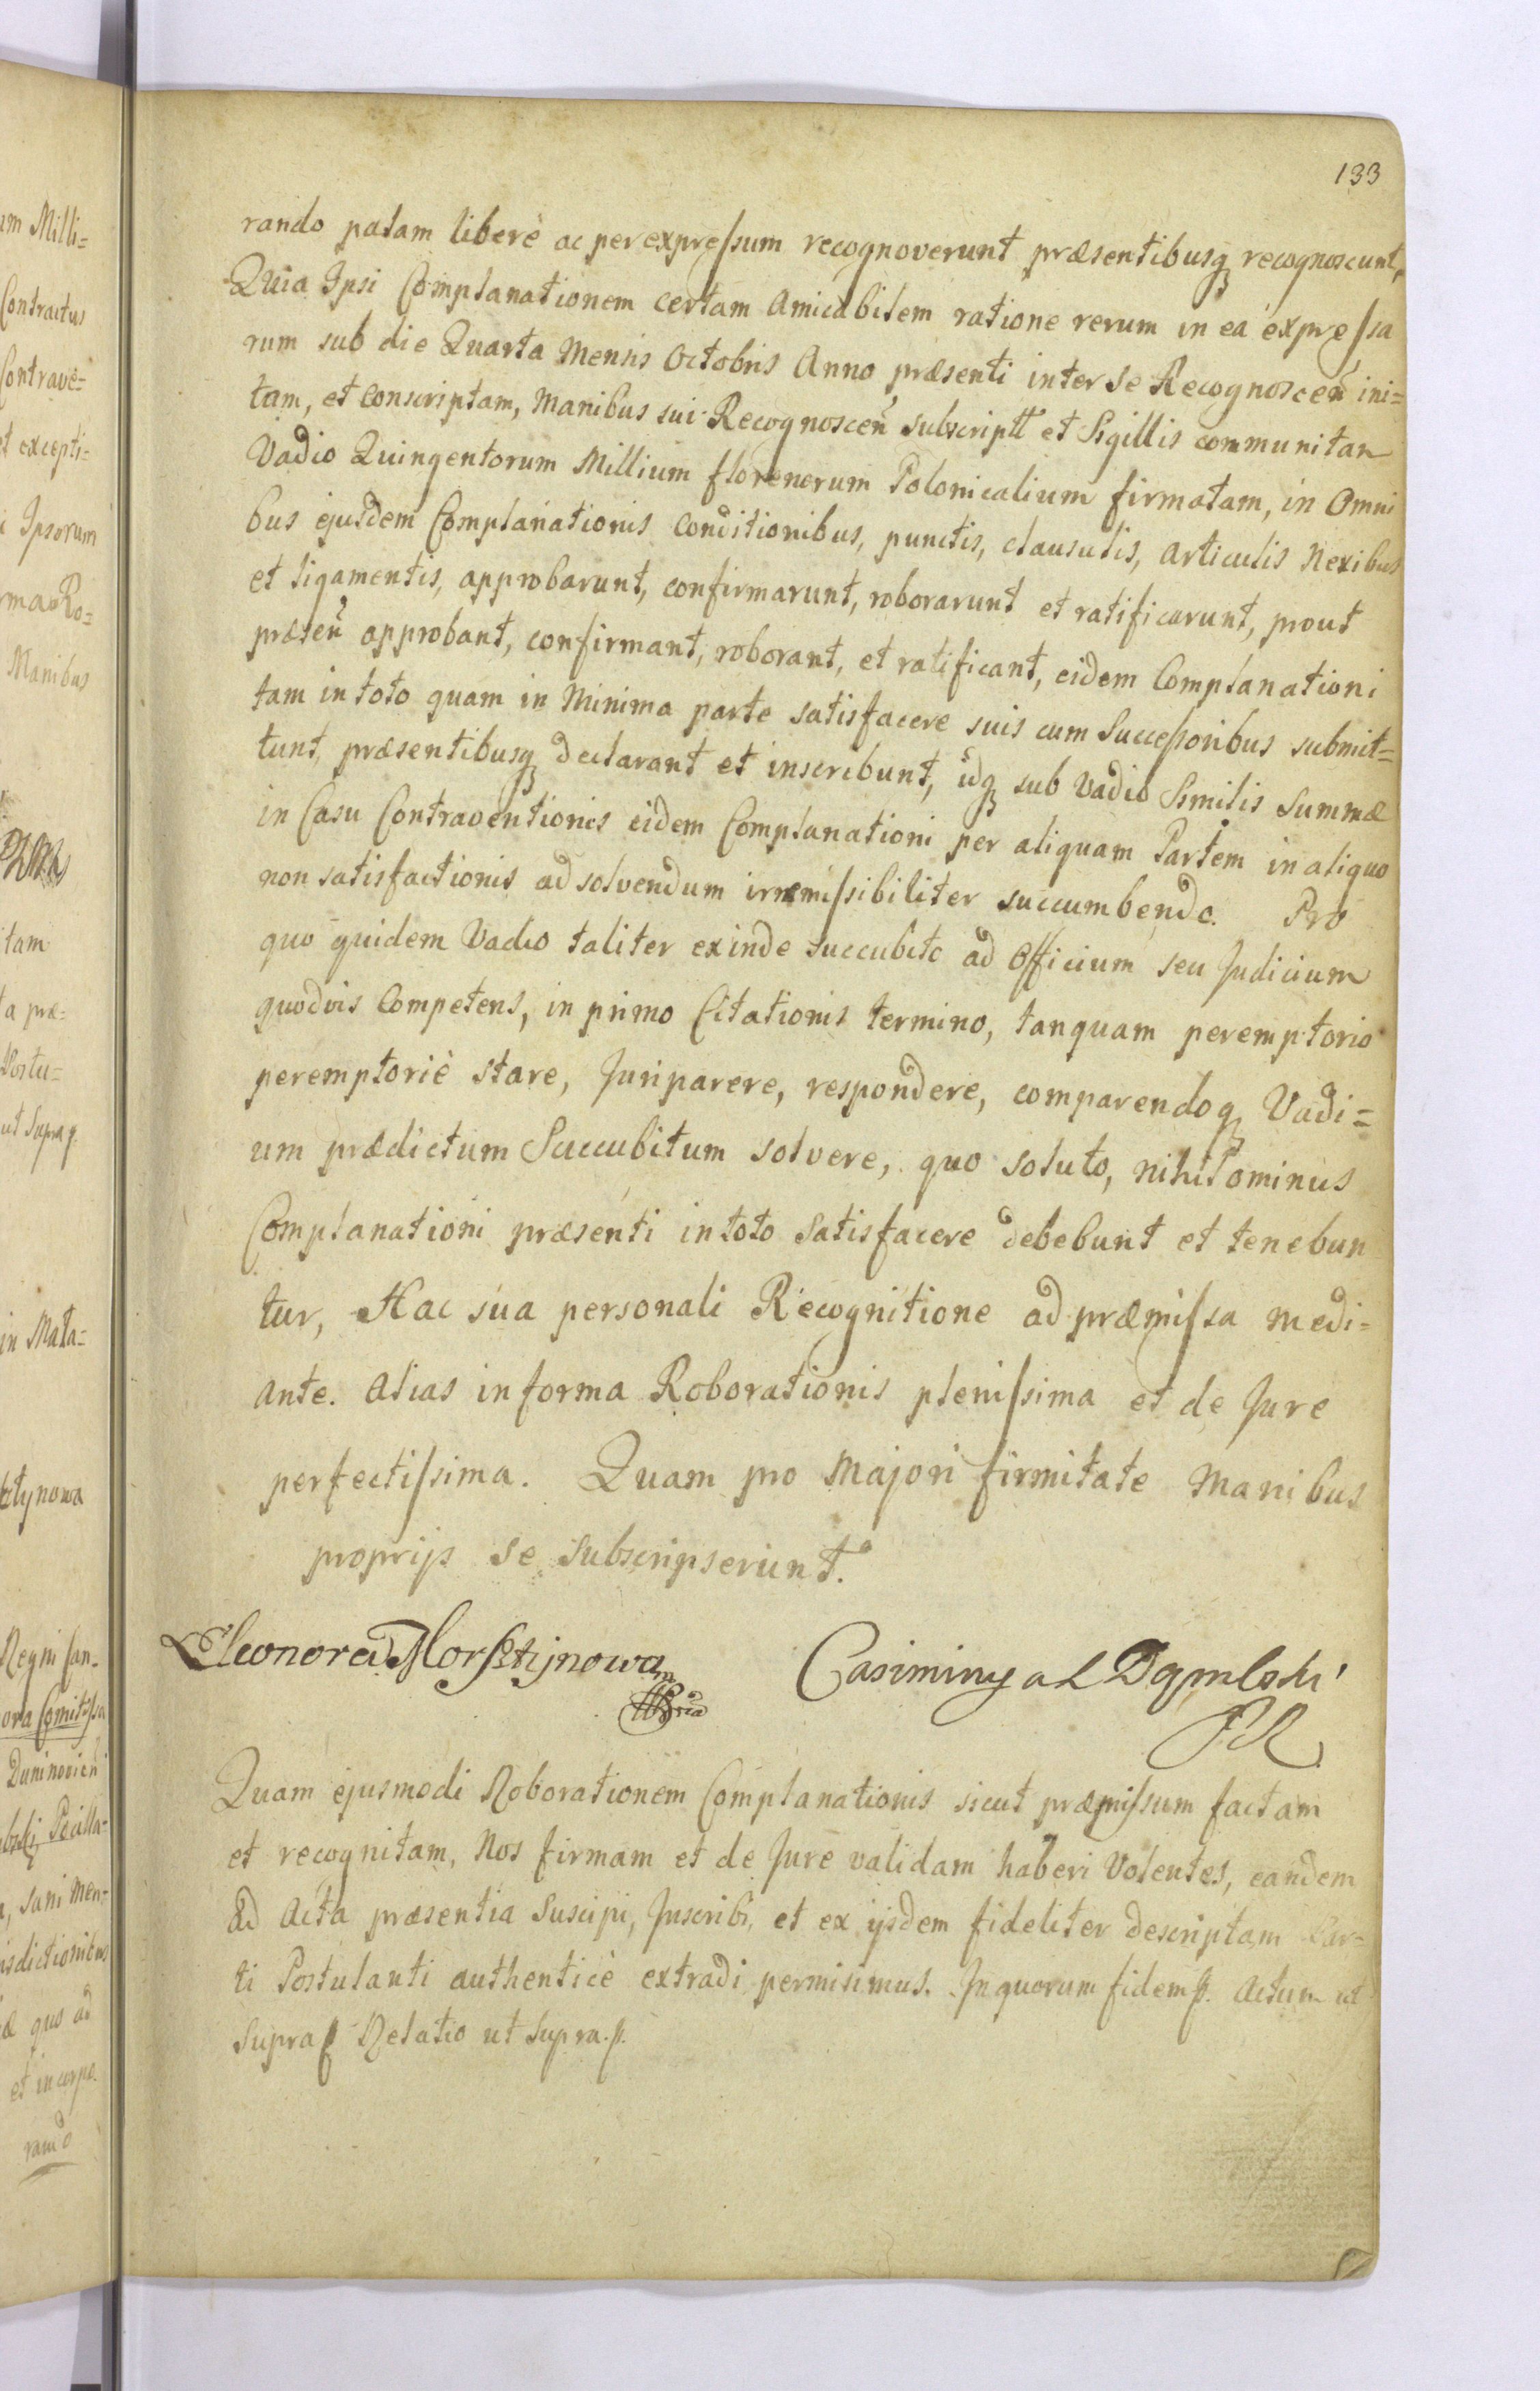 133
rando palam liberè ac per expressum recognoverunt præsentibusq recognoscunt,
Quia Ipsi Complanationem certam amicabilem ratione rerum in ea expressa
rum sub die Quarta Mensis Octobris Anno præsenti inter se Recognoscen ini=
tam, et conscriptam, Manibus sui Recognoscen subscriptt et Sigillis communitam
Vadio Quingentorum Millium florenorum Polonicalium firmatam, in Omni
bus ejusdem Complanationis conditionibus, punctis, clausulis, articulis Nexibus
et ligamentis, approbarunt, confirmarunt, roborarunt et ratificarunt, prout
præsen approbant, confirmant, roborant, et ratificant, eidem Complanationi
tam in toto quam in Minima parte satisfacere suis cum Successoribus submit=
tunt, præsentibusq declarant et inscribunt, idq sub Vadio Similis Summæ
in Casu Contraventionis eidem Complanationi per aliquam Partem in aliquo
non satisfactionis ad solvendum irremissibiliter succumbendo. Pro
quo quidem Vadio taliter exinde succubito ad Officium seu Judicium
quodvis Competens, in primo Citationis termino, tanquam peremptorio
peremptoriè stare, Juri parere, respondere, comparendoq Vadi=
um prædictum Succubitum solvere, quo soluto, nihilominus
Complanationi præsenti in toto satisfacere debebunt et tenebun
tur, Hac sua personali Recognitione ad præmissa medi=
ante. Alias in forma Roborationis plenissima et de Jure
perfectissima. Quam pro Majori firmitate Manibus
proprijs se subscripserunt.
Eleonora Morsztynowa
Casimiry
Quam ejusmodi Roborationem Complanationis sicut præmissum factam
et recognitam, Nos firmam et de Jure validam haberi Volentes, eandem
ad Acta præsentia Suscipi, Inscribi, et ex ijsdem fideliter descriptam Par=
ti Postulanti authenticè extradi permisimus. In quorum fidem p. Actum ut
Supra p Relatio ut Supra. p.